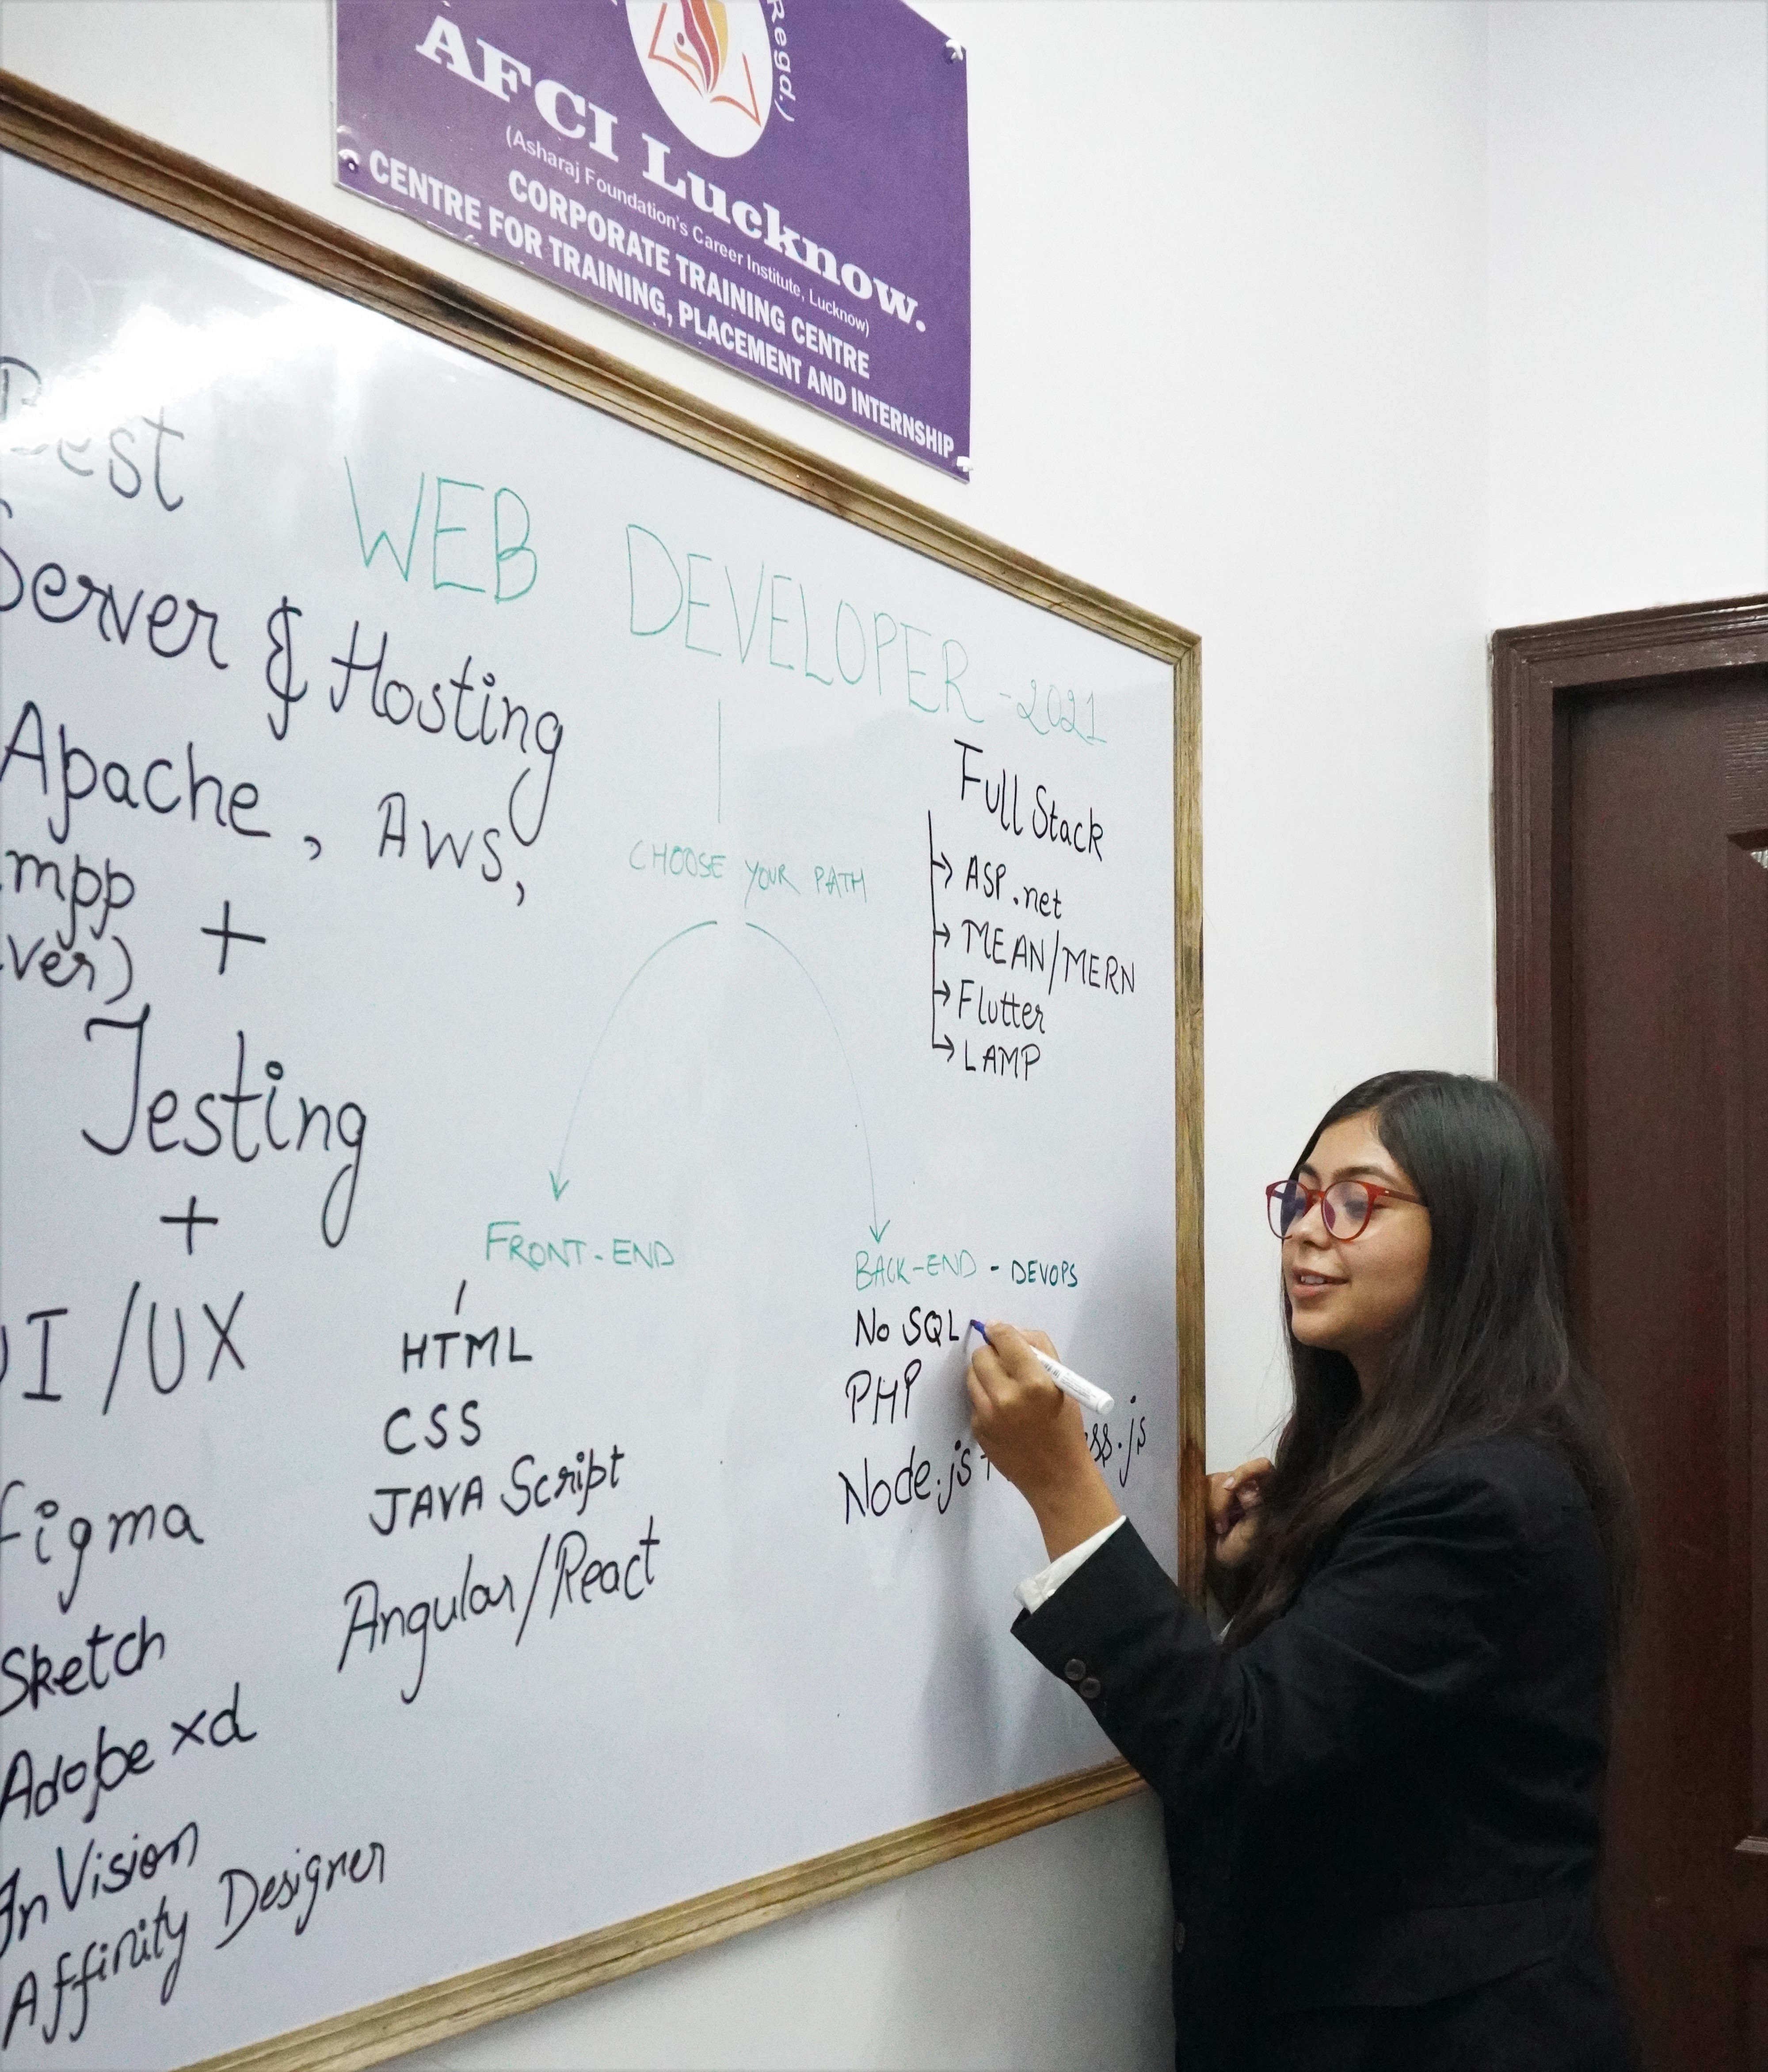 Regd.)
AFCI Lucknow.
(Asharaj Foundation's Career Institute, Lucknow)
CORPORATE TRAINING CENTRE
CENTRE FOR TRAINING, PLACEMENT AND INTERNSHIP
Best
Server & Hosting
Apache, AWS,
mpp
ver)
+
Testing
+
UI/UX
Figma
Sketch
Adobe xd
InVision
Affinity Designer
WEB DEVELOPER - 2021
CHOOSE YOUR PATH
FRONT-END
HTML
CSS
JAVA Script
Angular/React
Full Stack
ASP.net
MEAN/MERN
Flutter
LAMP
BACK-END - DEVOPS
No SQL
PHP
Node.js ss.js